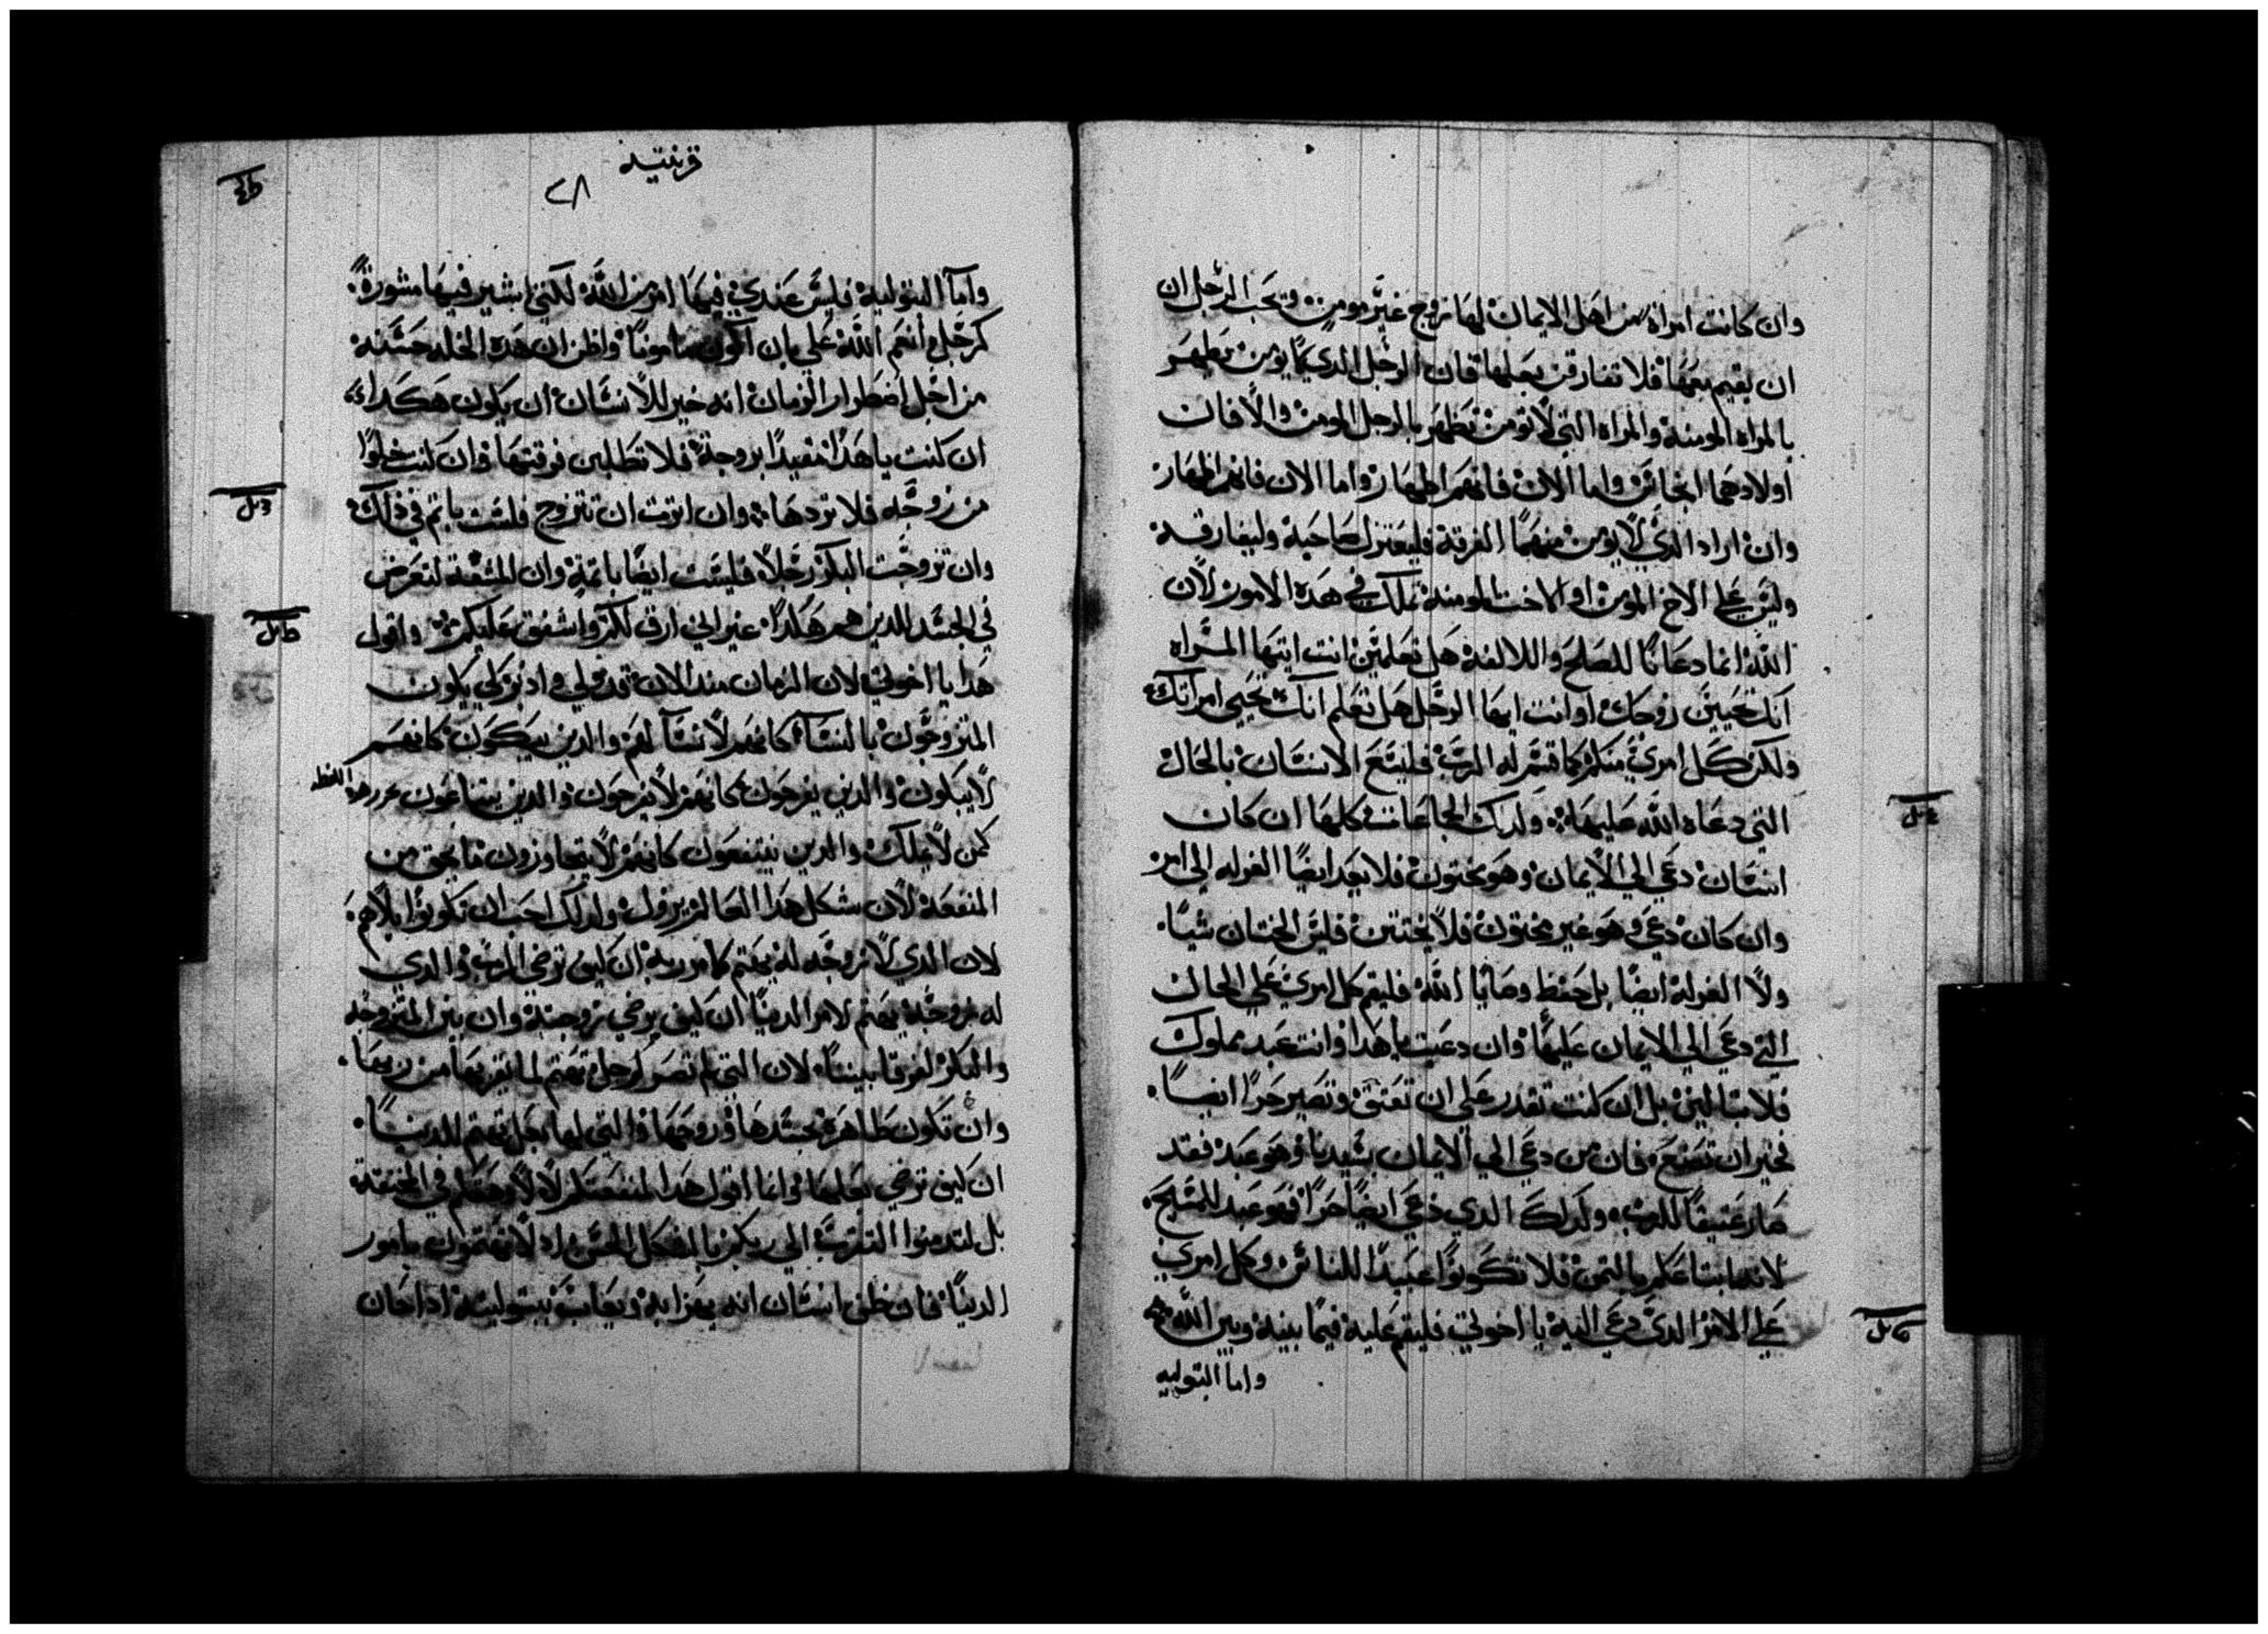 وان كانت امراة من اهل الايمان لها زوج غير مومن ويحب الرجل ان
ان يقيم معها فلا تفارقن بعلها فان الرجل الدي لا يومن يطهر
بالمراه المومنه والمراه التي لا تومن تطهر بالرجل المومن والا فان
اولادهما انجاس واما الان فانهم اطهار واما الان فانهم اطهار
وان اراد الدي لا يومن منهما الفرقة فليعتزل صاحبة وليفارقة
وليس علي الاخ المومن او الاخت المومنة تملك في هده الامور لان
الله انما دعانا للصلح واللالفة هل تعلمين انت ايتها المراه
انك تحيين زوجك او انت ايها الرجل هل تعلم انك تحيي امراتك
ولكن كل امري منكم كما قسم له الرب فليتع الانسان بالحال
التي دعاه الله عليها ولدلك الجاعات كلها ان كان
انسان دعي الي الايمان وهو مختون فلا يعد ايضا الغرله الي امر
وان كان دعي وهو غير مختون فلا يختتن فليس الختان شيا
ولا الغرلة ايضا بل حفظ وصايا الله فليقم كل امري علي الحال
التي دعي الي الايمان عليها وان دعيت يا هدا وانت عبد مملوك
فلا تبالين بل ان كنت تقدر علي ان تعتق وتصير حرا ايضا
فخير ان تصنع فان من دعي الي الايمان بسيدنا وهو عبد فقد
صار عتيقا للرب ولدلك الدي دعي ايضا حرا فهو عبد للمسيح
لانه ابتاعكم بالتمن فلا تكونوا عبيدا للناس وكل امري
علي الامر الدي دعي اليه يا اخوتي فليقم عليه فيما بينه وبين الله
واما البتوليه
قرنتيه
٢٨
واما البتولية فليس عندي فيها امر من الله لكني اشير فيها مشورة
كرجل انعم الله علي بان اكون مامونا واظن ان هده الخله حسنه
من اجل اضطرار الزمان انه خير للانسان ان يكون هكدا
ان كنت يا هدا مقيدا بزوجة فلا تطلبن فرقتها وان كنت خلوا
من زوجه فلا تردها وان اثرت ان تتزوج فلست باتم في ذلك
وان تزوجت البكر رجلا فليست ايضا باتمة وان المشقة لتعرض
في الجسد للدين هم هكدا غير اني ارق لكم واشفق عليكم واقول
هدا يا اخوتي لان الزمان مند الان قد ولي وادبر كي يكون
المتزوجون بالنسآ كانهم لا نسآ لهم والدين يبكون كانهم
لا يبكون والدين يفرحون كانهم لا يفرحون والدين يبتاعون
كمن لا يملك والدين ينتفعون كانهم لا يتجاوزون ما يحق من
المنفعة لان شكل هدا العالم يزول ولدلك احب ان تكونوا بلا هم
لان الدي لا زوجه له يهتم بامور ربة ان كيف يرضي الرب والدي
له زوجة يهتم لامر الدنيا ان كيف يرضي زوجتة وان بين المتزوجه
والبكر لفرقا بينا لان التي لم تصر لرجل تهتم لما يقربها من ربها
وان تكون طاهرة بجسدها وروحها والتي لها بعل تهتم للدنيا
ان كيف ترضي بعلها وانما اقول هدا لمنفعتكم لا لاوهقكم في الخنقة
بل لتدمنوا التقرب الي ربكم بالشكل الحسن اد لا تهتمون بامور
الدنيا فان ظن انسان انه يهزا به ويعاب ببتوليته ادا حان